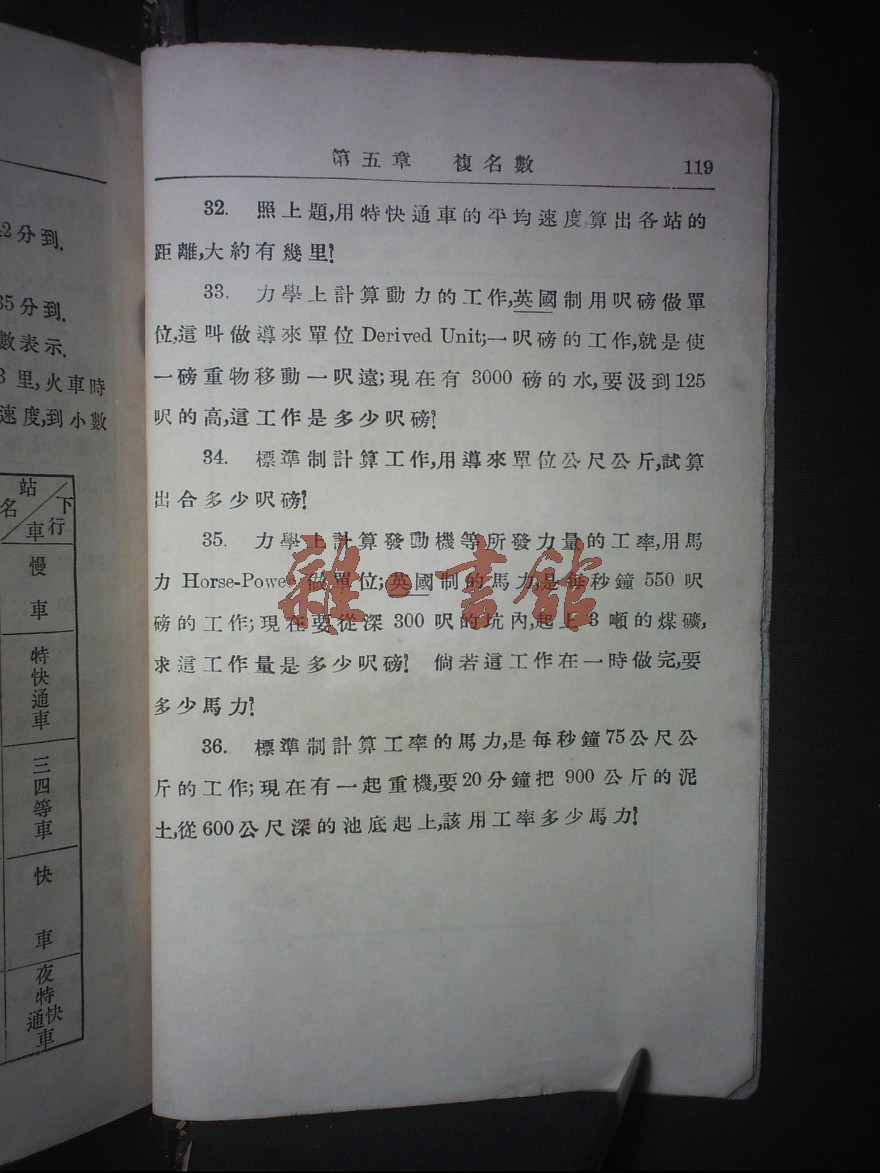 2分到.
35分到.
數表示.
3里,火車時
速度,到小數
站名
下行
車
慢車
特快通車
三四等車
快車
夜特快通車
第五章 複名數 119
32. 照上題,用特快通車的平均速度算出各站的
距離,大約有幾里?
33. 力學上計算動力的工作,英國制用呎磅做單
位,這叫做導來單位 Derived Unit;一呎磅的工作,就是使
一磅重物移動一呎遠;現在有 3000 磅的水,要汲到125
呎的高,這工作是多少呎磅?
34. 標準制計算工作,用導來單位公尺公斤,試算
出合多少呎磅?
35. 力學上計算發動機等所發力量的工率,用馬
力 Horse-Power 做單位;英國制的馬力,是每秒鐘 550 呎
磅的工作;現在要從深 300 呎的坑內,起上 3 噸的煤礦,
求這工作量是多少呎磅? 倘若這工作在一時做完,要
多少馬力?
36. 標準制計算工率的馬力,是每秒鐘75公尺公
斤的工作;現在有一起重機,要20分鐘把 900 公斤的泥
土,從600公尺深的池底起上,該用工率多少馬力?
雜·書館